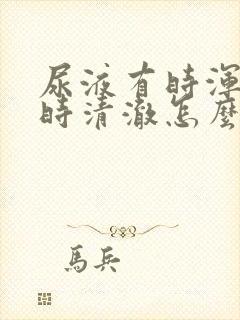 尿液有時渾
時清澈怎麼
馬兵